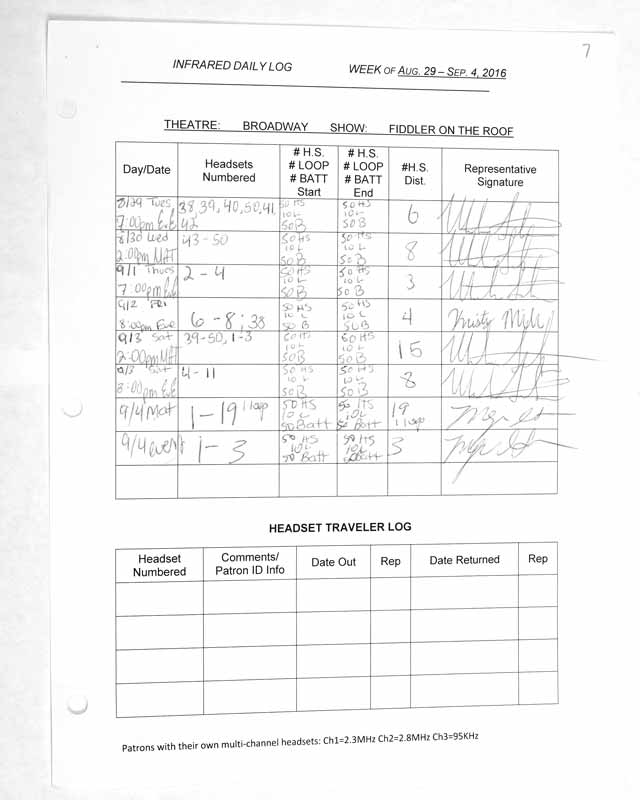 7
INFRARED DAILY LOG WEEK OF AUG. 29 – SEP. 4, 2016
THEATRE: BROADWAY SHOW: FIDDLER ON THE ROOF
Day/Date Headsets Numbered # H.S. # LOOP # BATT Start # H.S. # LOOP # BATT End #H.S. Dist. Representative Signature
Tues 7:00pm Eve 38, 39, 40, 50, 41, 42 50 HS 10 L 50 B 50 HS 10 L 50 B 6
8/30 Wed 2:00pm MAT 43-50 50 HS 10 L 50 B 50 HS 10 L 50 B 8
9/1 Thurs 7:00pm Eve 2-4 50 HS 10 L 50 B 50 HS 10 L 50 B 3
9/2 FRI 8:00pm Eve 6-8, 38 50 HS 10 L 50 B 50 HS 10 L 50 B 4
9/3 Sat 2:00pm MAT 39-50, 1-3 50 HS 10 L 50 B 50 HS 10 L 50 B 15
9/3 Sat 8:00pm Eve 4-11 50 HS 10 L 50 B 50 HS 10 L 50 B 8
9/4 Mat 1-19 1 loop 50 HS 10 L 50 Batt 50 HS 10 L 50 Batt 19 1 loop
9/4 event 1-3 50 HS 10 L 50 Batt 50 HS 10 L 50 Batt 3
HEADSET TRAVELER LOG
Headset Numbered Comments/ Patron ID Info Date Out Rep Date Returned Rep
Patrons with their own multi-channel headsets: Ch1=2.3MHz Ch2=2.8MHz Ch3=95KHz